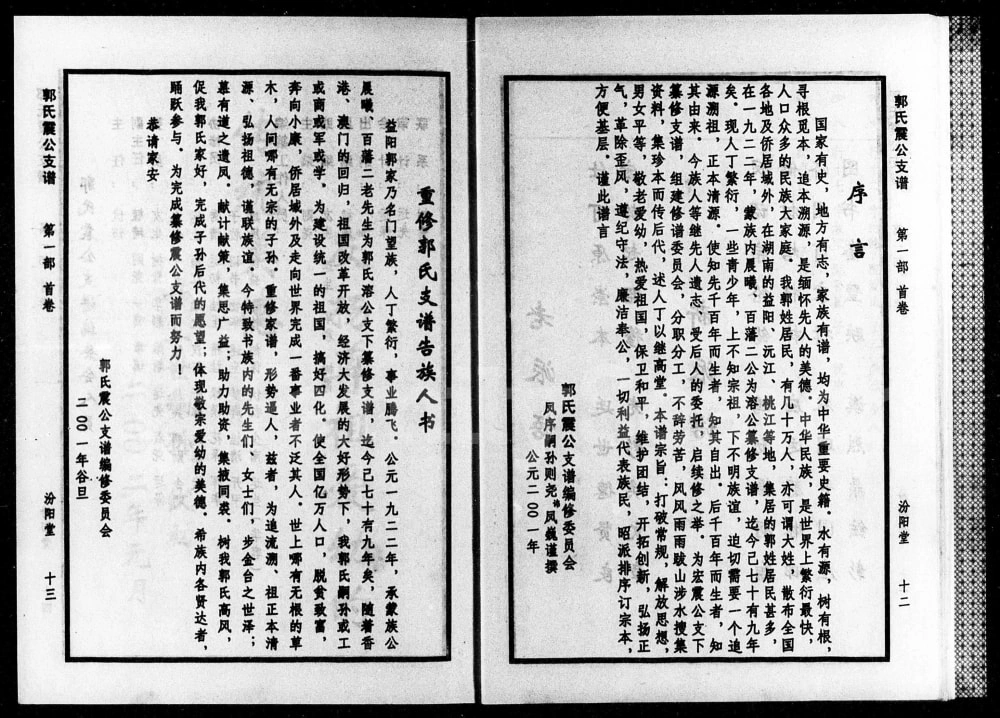 郭氏震公支谱 第一部 首卷 汾阳堂 十二
序言
国家有史，地方有志，家族有谱，均为中华重要史籍。水有源，树有根，
寻根觅本，追本溯源，是缅怀先人的美德。中华民族，是世界上繁衍最快，
人口众多的民族大家庭。我郭姓居民，有几十万人，亦可谓大姓，散布全国
各地及侨居域外。在湖南的益阳、沅江、桃江等地，集居的郭姓居民甚多，
在一九二二年，蒙族内晨曦，百藩二公为溶公纂修支谱，迄今己七十有九年
矣。现人丁繁衍，一些青少年，上不知宗祖，下不明族谊，迫切需要一个追
源溯祖，正本清源。使知先千百年而生者，知其自出。后千百年而生者，知
其由来。今族人等继先人遗志，受后人的委托，启续修之举。为宏震公支下
纂修支谱，组建修谱委员会，分职分工，不辞劳苦，风风雨雨跋山涉水搜集
资料，集珍本而传后代，述人丁以继高堂。本谱宗旨：打破常规，解放思想，
男女平等，敬老爱幼，热爱祖国，保卫和平，维护团结，开拓创新，弘扬正
气，革除歪风，遵纪守法，廉洁奉公，一切利益代表族民，昭派排序订宗本，
方便基层。谨此谱言
郭氏震公支谱编修委员会
凤序嗣孙则尧 凤巍谨撰
公元二00一年
重修郭氏支谱告族人书
益阳郭家乃名门望族，人丁繁衍，事业腾飞。公元一九二二年，承蒙族公
晨曦、百藩二老先生为郭氏溶公支下纂修支谱，迄今己七十有九年矣，随着香
港、澳门的回归，祖国改革开放，经济大发展的大好形势下，我郭氏嗣孙或工
或商或军或学，为建设统一的祖国，搞好四化，使全国亿万人口，脱贫致富，
奔向小康，侨居域外及走向世界完成一番事业者不泛其人。世上哪有无根的草
木，人间哪有无宗的子孙，重修家谱，形势逼人，兹者，为追流溯、祖正本清
源、弘扬祖德，谨联族谊，今特致书族内的先生们，女士们，步金台之世泽；
慕有道之遗风。献计献策，集思广益；助力助资，集掖同裘。树我郭氏高风，
促我郭氏家好，完成子孙后代的愿望；体现敬宗爱幼的美德。希族内各贤达者，
踊跃参与。为完成纂修震公支谱而努力！
恭请家安
郭氏震公支谱编修委员会
二00一年谷旦
郭氏震公支谱 第一部 首卷 汾阳堂 十三